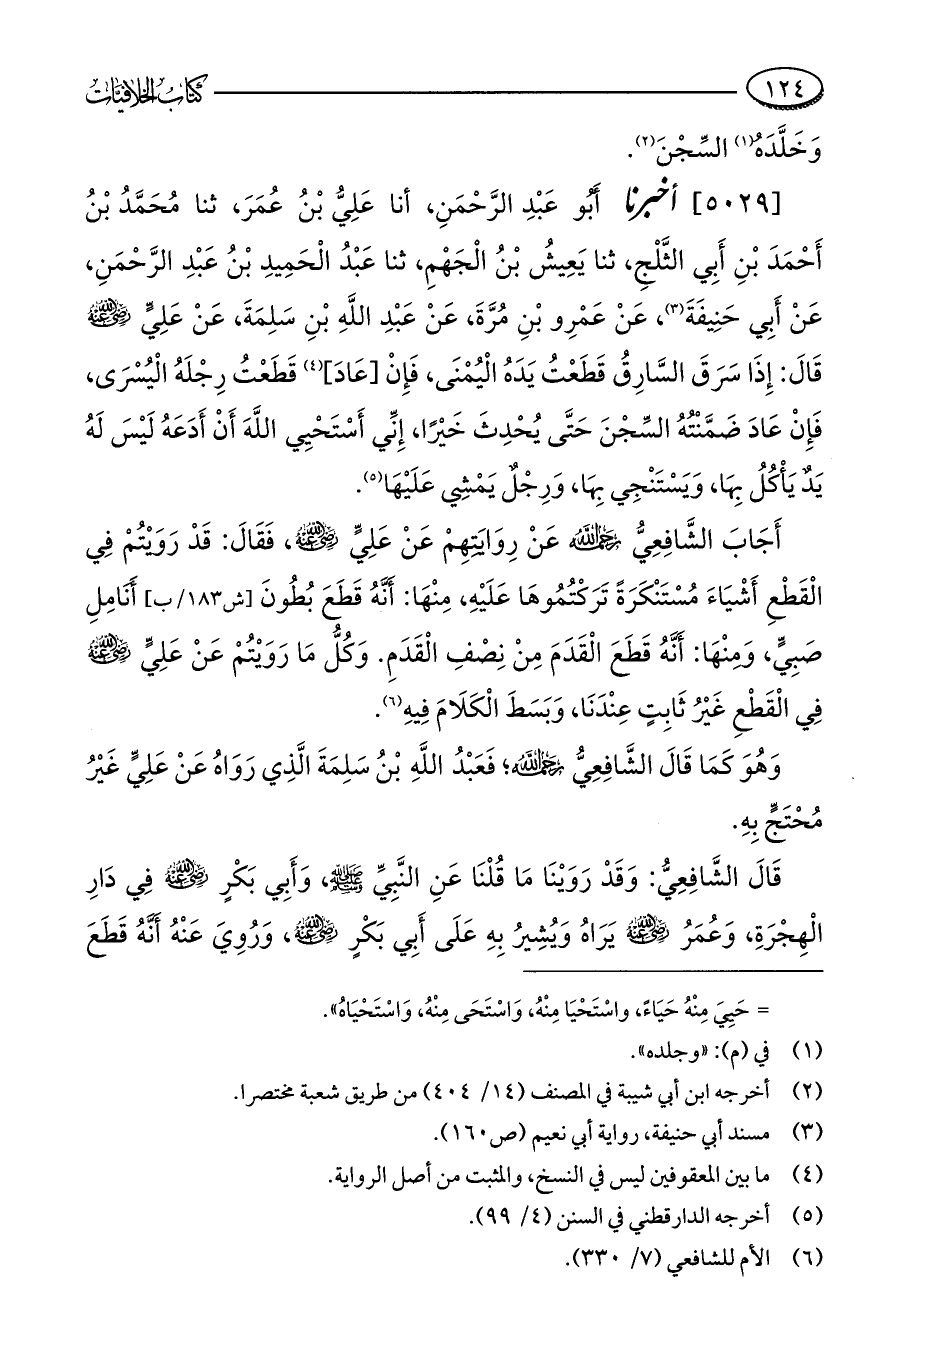 ١٢٤ كتاب الخلافيات
وَخَلَّدَهُ(١) السِّجْنَ(٢).
[٥٠٢٩] أخبرنا أَبُو عَبْدِ الرَّحْمَنِ، أنا عَلِيُّ بْنُ عُمَرَ، ثنا مُحَمَّدُ بْنُ
أَحْمَدَ بْنِ أَبِي الثَّلْجِ، ثنا يَعِيشُ بْنُ الْجَهْمِ، ثنا عَبْدُ الْحَمِيدِ بْنُ عَبْدِ الرَّحْمَنِ،
عَنْ أَبِي حَنِيفَةَ(٣)، عَنْ عَمْرِو بْنِ مُرَّةَ، عَنْ عَبْدِ اللَّهِ بْنِ سَلِمَةَ، عَنْ عَلِيٍّ رضي الله عنه
قَالَ: إِذَا سَرَقَ السَّارِقُ قَطَعْتُ يَدَهُ الْيُمْنَى، فَإِنْ [عَادَ](٤) قَطَعْتُ رِجْلَهُ الْيُسْرَى،
فَإِنْ عَادَ ضَمَّنْتُهُ السِّجْنَ حَتَّى يُحْدِثَ خَيْرًا، إِنِّي أَسْتَحْيِي اللَّهَ أَنْ أَدَعَهُ لَيْسَ لَهُ
يَدٌ يَأْكُلُ بِهَا، وَيَسْتَنْجِي بِهَا، وَرِجْلٌ يَمْشِي عَلَيْهَا(٥).
أَجَابَ الشَّافِعِيُّ رحمه الله عَنْ رِوَايَتِهِمْ عَنْ عَلِيٍّ رضي الله عنه، فَقَالَ: قَدْ رَوَيْتُمْ فِي
الْقَطْعِ أَشْيَاءَ مُسْتَنْكَرَةً تَرَكْتُمُوهَا عَلَيْهِ، مِنْهَا: أَنَّهُ قَطَعَ بُطُونَ [ش١٨٣/ب] أَنَامِلِ
صَبِيٍّ، وَمِنْهَا: أَنَّهُ قَطَعَ الْقَدَمَ مِنْ نِصْفِ الْقَدَمِ. وَكُلُّ مَا رَوَيْتُمْ عَنْ عَلِيٍّ رضي الله عنه
فِي الْقَطْعِ غَيْرُ ثَابِتٍ عِنْدَنَا، وَبَسَطَ الْكَلَامَ فِيهِ(٦).
وَهُوَ كَمَا قَالَ الشَّافِعِيُّ رحمه الله؛ فَعَبْدُ اللَّهِ بْنُ سَلِمَةَ الَّذِي رَوَاهُ عَنْ عَلِيٍّ غَيْرُ
مُحْتَجٍّ بِهِ.
قَالَ الشَّافِعِيُّ: وَقَدْ رَوَيْنَا مَا قُلْنَا عَنِ النَّبِيِّ ﷺ، وَأَبِي بَكْرٍ رضي الله عنه فِي دَارِ
الْهِجْرَةِ، وَعُمَرُ رضي الله عنه يَرَاهُ وَيُشِيرُ بِهِ عَلَى أَبِي بَكْرٍ رضي الله عنه، وَرُوِيَ عَنْهُ أَنَّهُ قَطَعَ
= حَيِيَ مِنْهُ حَيَاءً، واسْتَحْيَا مِنْهُ، وَاسْتَحَى مِنْهُ، وَاسْتَحْيَاهُ».
(١) في (م): «وجلده».
(٢) أخرجه ابن أبي شيبة في المصنف (١٤/ ٤٠٤) من طريق شعبة مختصرا.
(٣) مسند أبي حنيفة، رواية أبي نعيم (ص١٦٠).
(٤) ما بين المعقوفين ليس في النسخ، والمثبت من أصل الرواية.
(٥) أخرجه الدارقطني في السنن (٤/ ٩٩).
(٦) الأم للشافعي (٧/ ٣٣٠).